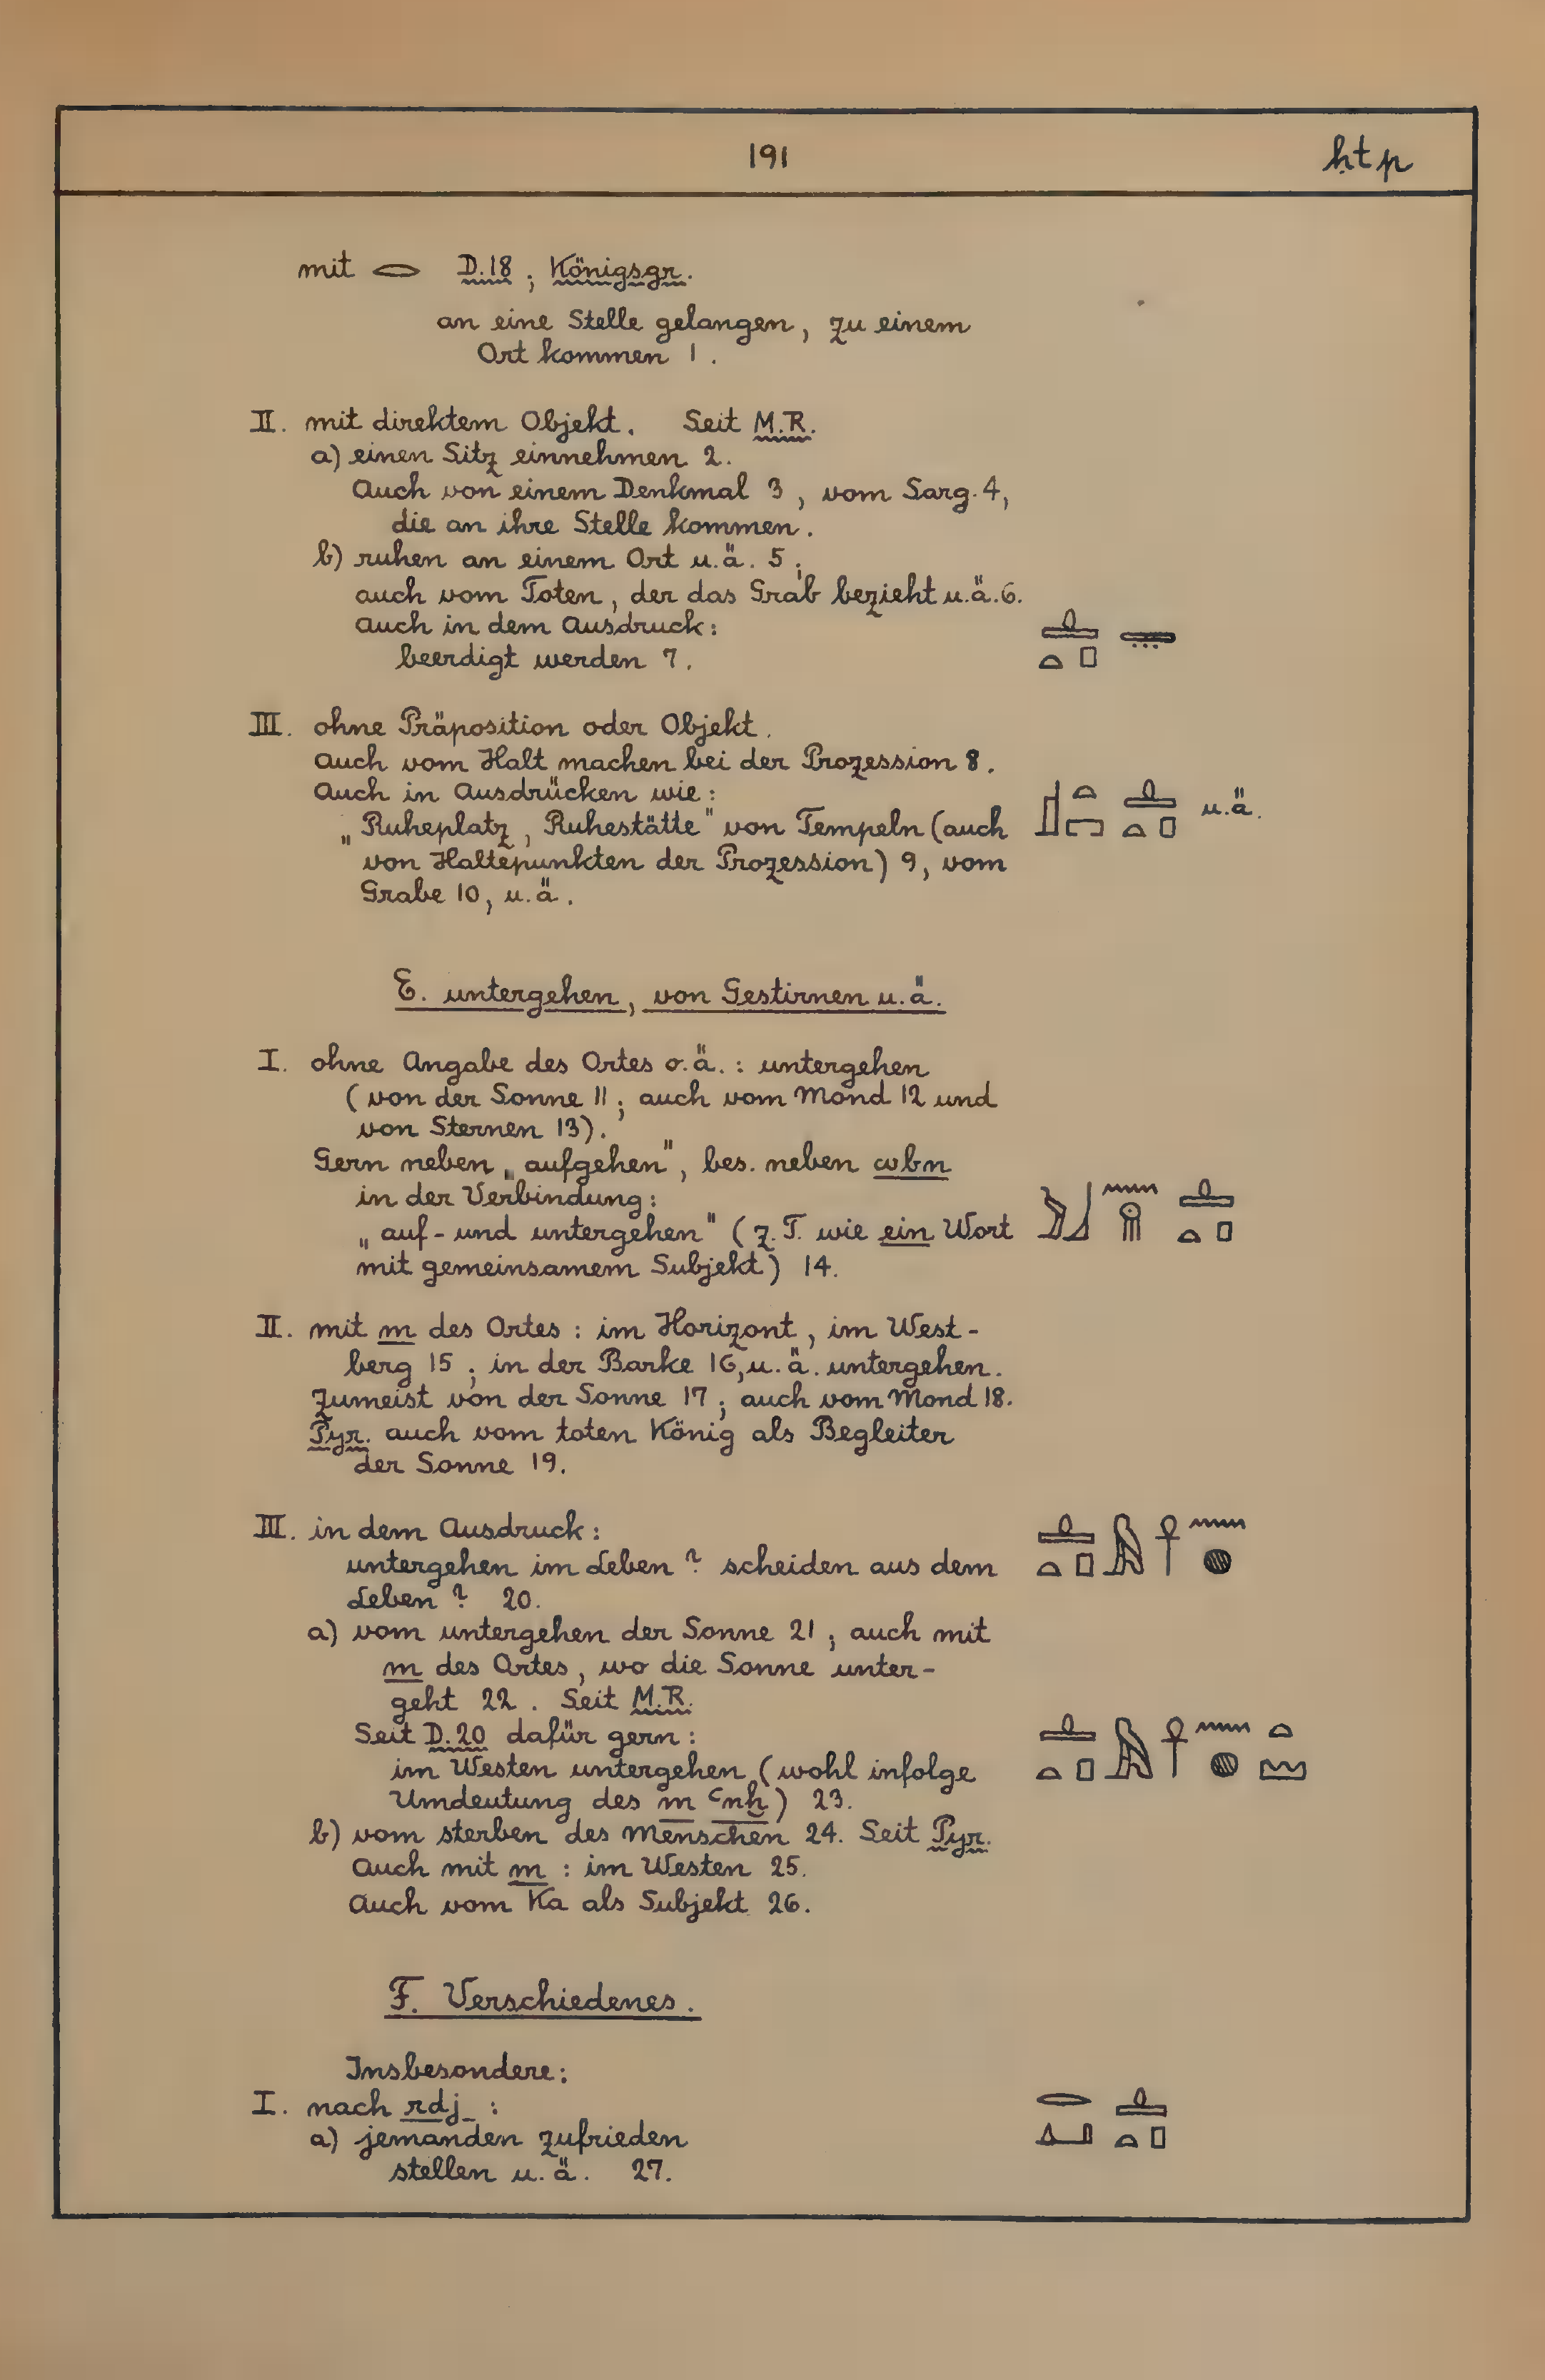 191 ḥtp
mit 𓂋 D.18 ; Königsgr.
an eine Stelle gelangen, zu einem
Ort kommen 1.
II. mit direktem Objekt. Seit M.R.
a) einen Sitz einnehmen 2.
Auch von einem Denkmal 3, vom Sarg 4,
die an ihre Stelle kommen.
b) ruhen an einem Ort u.ä. 5;
auch vom Toten, der das Grab bezieht u.ä. 6.
Auch in dem Ausdruck: 𓊵𓏏𓊪 𓇾
beerdigt werden 7.
III. ohne Präposition oder Objekt.
Auch vom Halt machen bei der Prozession 8.
Auch in Ausdrücken wie: 𓊨𓏏𓉐 𓊵𓏏𓊪 u.ä.
„Ruheplatz, Ruhestätte" von Tempeln (auch
von Haltepunkten der Prozession) 9, vom
Grabe 10, u.ä.
E. untergehen, von Gestirnen u.ä.
I. ohne Angabe des Ortes o.ä.: untergehen
(von der Sonne 11; auch vom Mond 12 und
von Sternen 13).
Gern neben „aufgehen", bes. neben wbn
in der Verbindung: 𓅱𓃀𓈖𓇶 𓊵𓏏𓊪
„auf- und untergehen" (z.T. wie ein Wort
mit gemeinsamem Subjekt) 14.
II. mit m des Ortes: im Horizont, im West-
berg 15; in der Barke 16, u.ä. untergehen.
Zumeist von der Sonne 17; auch vom Mond 18.
Pyr. auch vom toten König als Begleiter
der Sonne 19.
III. in dem Ausdruck: 𓊵𓏏𓊪𓅓𓋹𓈖𓐍
untergehen im Leben? scheiden aus dem
Leben? 20.
a) vom untergehen der Sonne 21; auch mit
m des Ortes, wo die Sonne unter-
geht 22. Seit M.R.
Seit D.20 dafür gern: 𓊵𓏏𓊪𓅓𓋹𓈖𓐍𓏏𓈉
im Westen untergehen (wohl infolge
Umdeutung des m ꜥnḫ) 23.
b) vom sterben des Menschen 24. Seit Pyr.
Auch mit m: im Westen 25.
Auch vom Ka als Subjekt 26.
F. Verschiedenes.
Insbesondere:
I. nach rdj: 𓂋𓂞 𓊵𓏏𓊪
a) jemanden zufrieden
stellen u.ä. 27.